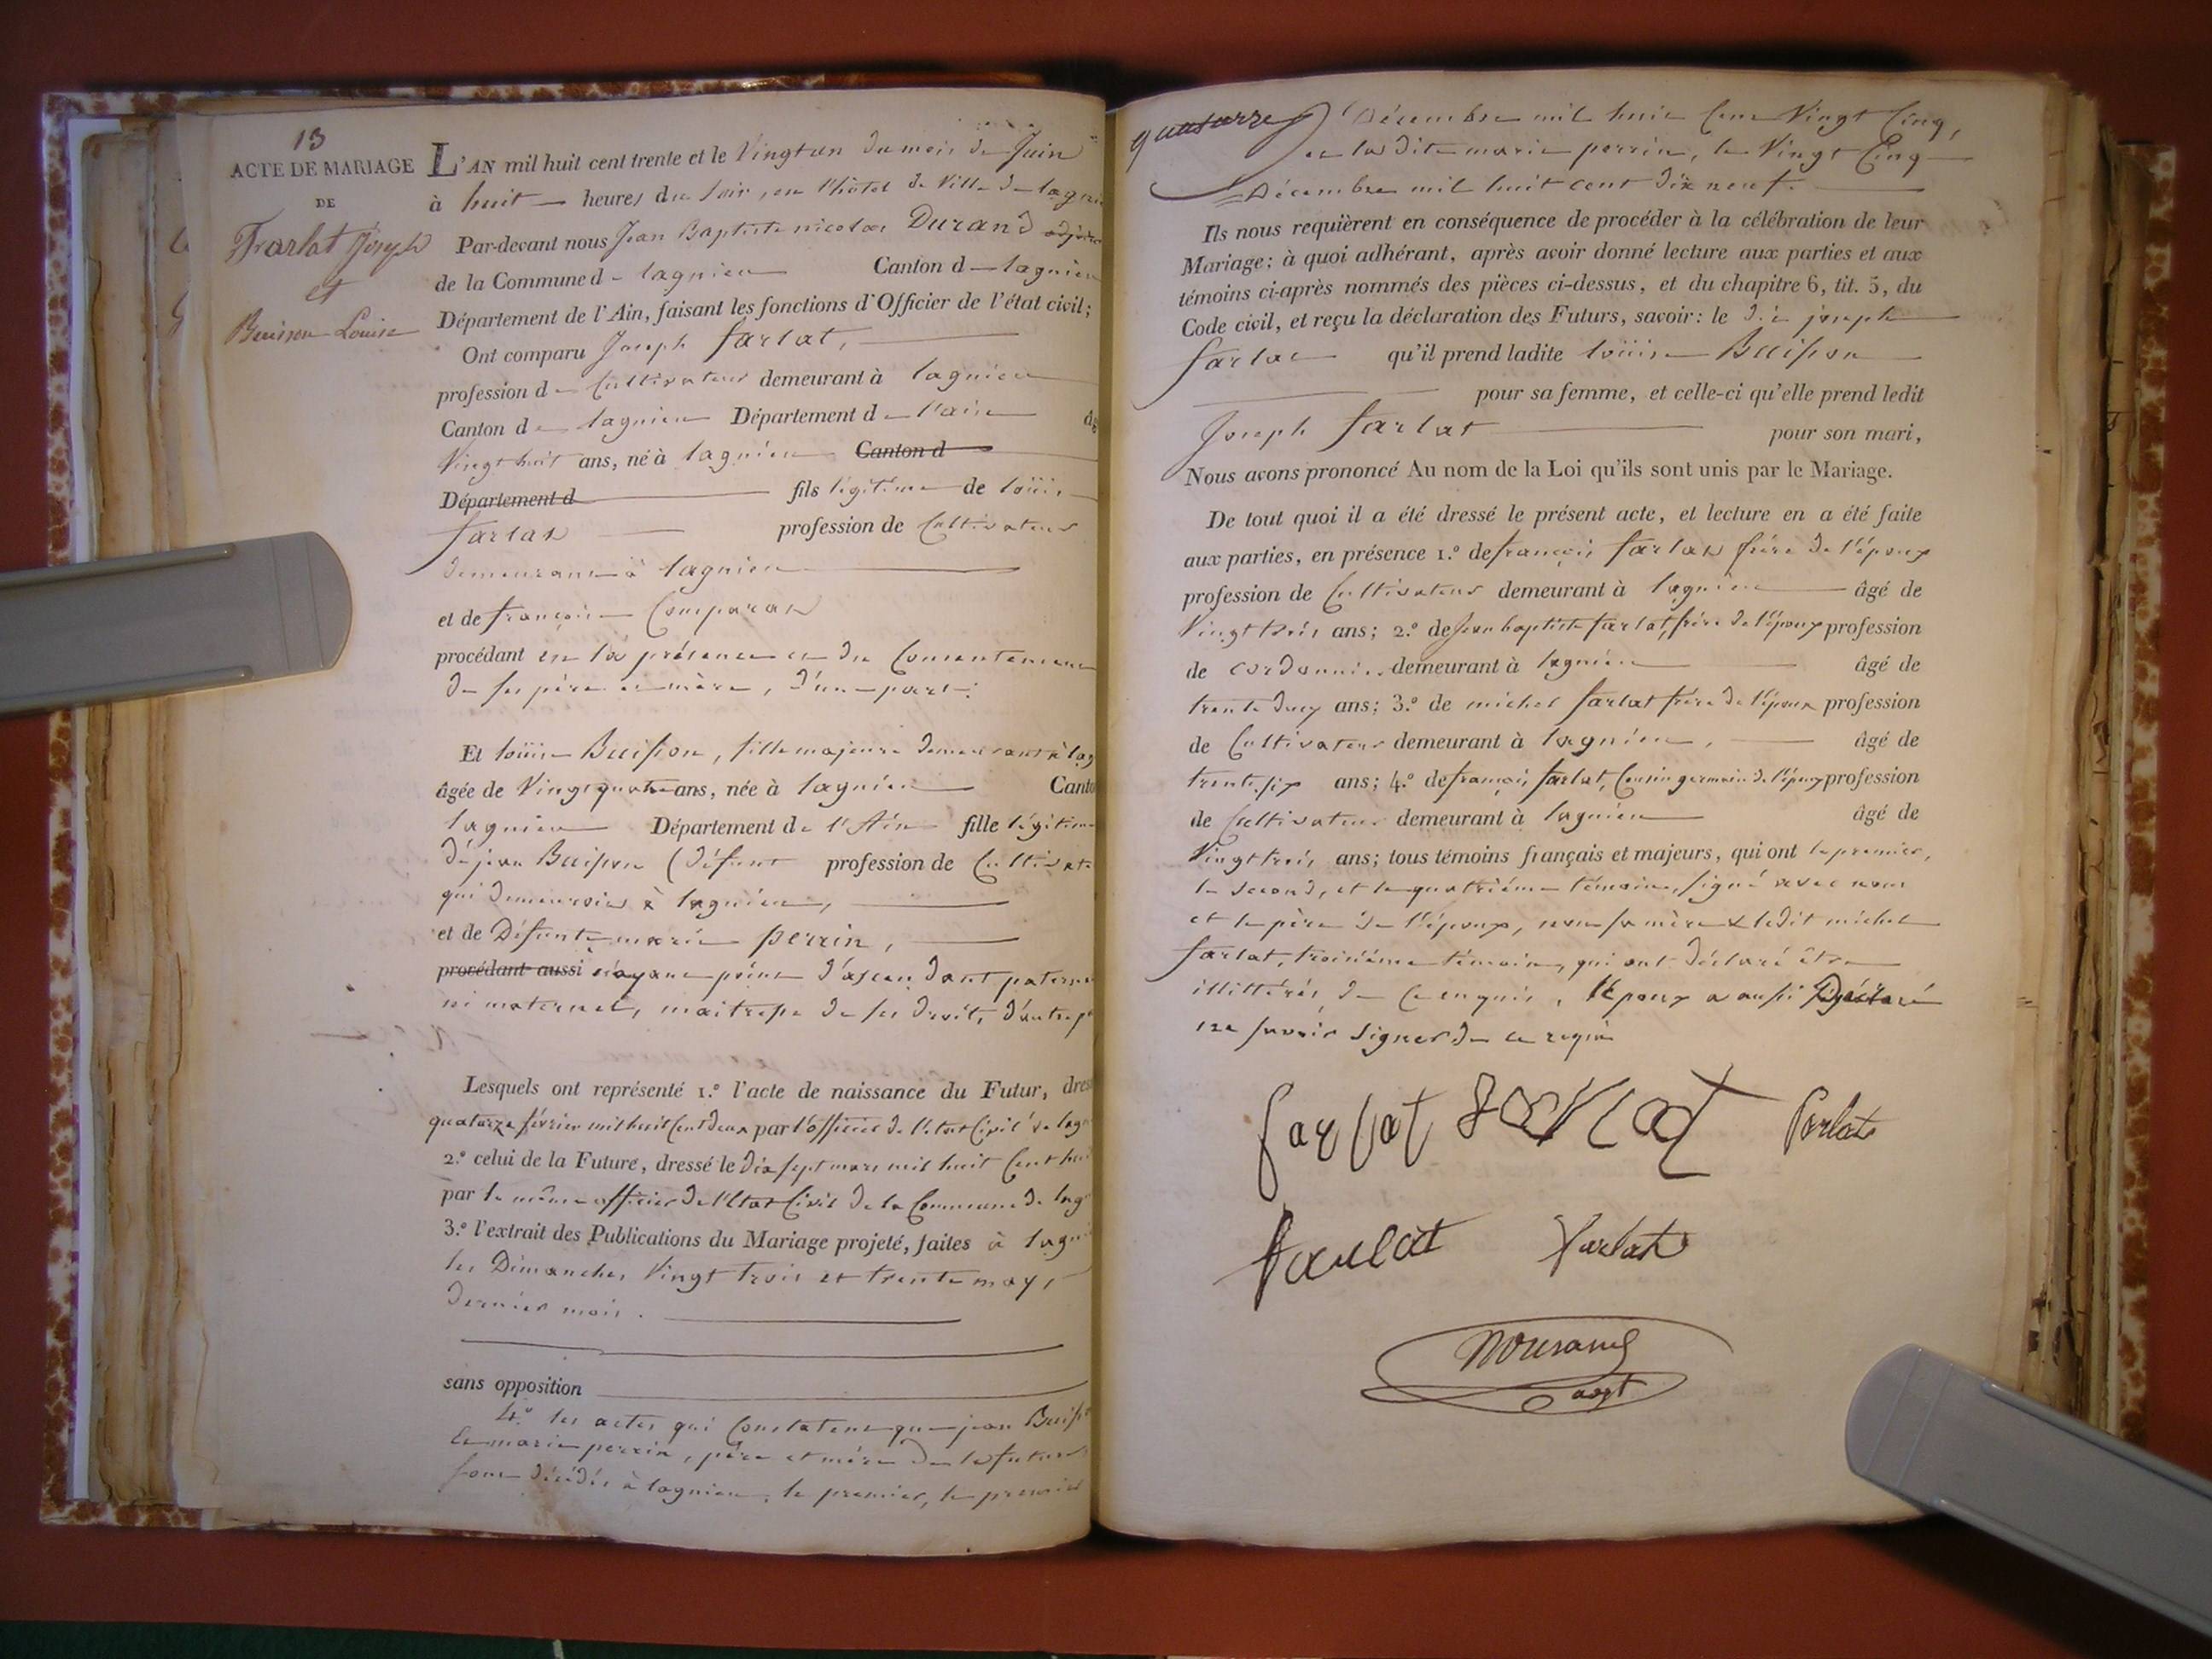 13
ACTE DE MARIAGE
DE
Farlat Joseph
et
Buisson Louise
L'AN mil huit cent trente et le Vingt un du mois de Juin
à huit heures du soir, en l'hôtel de Ville de lagnie
Par-devant nous Jean Baptiste nicolas Durand adjoint
de la Commune de lagnieu Canton de lagnieu
Département de l'Ain, faisant les fonctions d'Officier de l'état civil;
Ont comparu Joseph farlat,
profession de Cultivateur demeurant à lagnieu
Canton de lagnieu Département de l'ain âg
Vingt huit ans, né à lagnieu Canton d
Département d fils légitime de loüis
farlat profession de Cultivateur
demeurant à lagnieu
et de françoise Comparat
procédant en la présence et du Consentement
de ses père et mère, d'une part.
Et loüise Buisson, fille majeure demeurant à lag
âgée de Vingt quatre ans, née à lagnieu Canto
lagnieu Département de l'Ain fille légitime
de jean Buisson (défunt profession de Cultivate
qui demeuroit à lagnieu,
et de Défunte marie perrin,
procédant aussi n'ayant point d'ascendant paterne
ni maternel, maitresse de ses droits, d'autre p
Lesquels ont représenté 1.º l'acte de naissance du Futur, dres
quatorze février mil huit Cent deux par l'officier de l'état Civil de lagn
2.º celui de la Future, dressé le dix sept mars mil huit Cent
par le même officier de l'Etat Civil de la Commune de lag
3.º l'extrait des Publications du Mariage projeté, faites à lagn
les Dimanches Vingt trois et trente may,
dernier mois.
sans opposition
4.º les actes qui Constatent que jean Buiss
Et marie perrin, père et mère de la future
sont décédés à lagnieu, le premier, le premier
quatorze Décembre mil huit Cent Vingt Cinq,
et la dite marie perrin, le Vingt Cinq
Décembre mil huit cent dix neuf.
Ils nous requièrent en conséquence de procéder à la célébration de leur
Mariage; à quoi adhérant, après avoir donné lecture aux parties et aux
témoins ci-après nommés des pièces ci-dessus, et du chapitre 6, tit. 5, du
Code civil, et reçu la déclaration des Futurs, savoir: le dit joseph
farlat qu'il prend ladite loüise Buisson
pour sa femme, et celle-ci qu'elle prend ledit
Joseph farlat pour son mari,
Nous avons prononcé Au nom de la Loi qu'ils sont unis par le Mariage.
De tout quoi il a été dressé le présent acte, et lecture en a été faite
aux parties, en présence 1.º de françois farlat frère de l'époux
profession de Cultivateur demeurant à lagnieu âgé de
Vingt trois ans; 2.º de Jean baptiste farlat, frère de l'époux profession
de cordonnier demeurant à lagnieu âgé de
trente deux ans; 3.º de michel farlat frère de l'époux profession
de Cultivateur demeurant à lagnieu, âgé de
trente six ans; 4.º de françois farlat, Cousin germain de l'époux profession
de Cultivateur demeurant à lagnieu âgé de
Vingt trois ans; tous témoins français et majeurs, qui ont le premier,
le second, et le quatrième témoins, signé avec nous
et le père de l'époux, non sa mère & ledit michel
farlat, troisième témoin, qui ont déclaré être
illittérés de ce enquis, l'époux a aussi Déclaré
ne savoir signer de ce requis
farlat farlat farlat
farlat farlat
NDurand
adjt